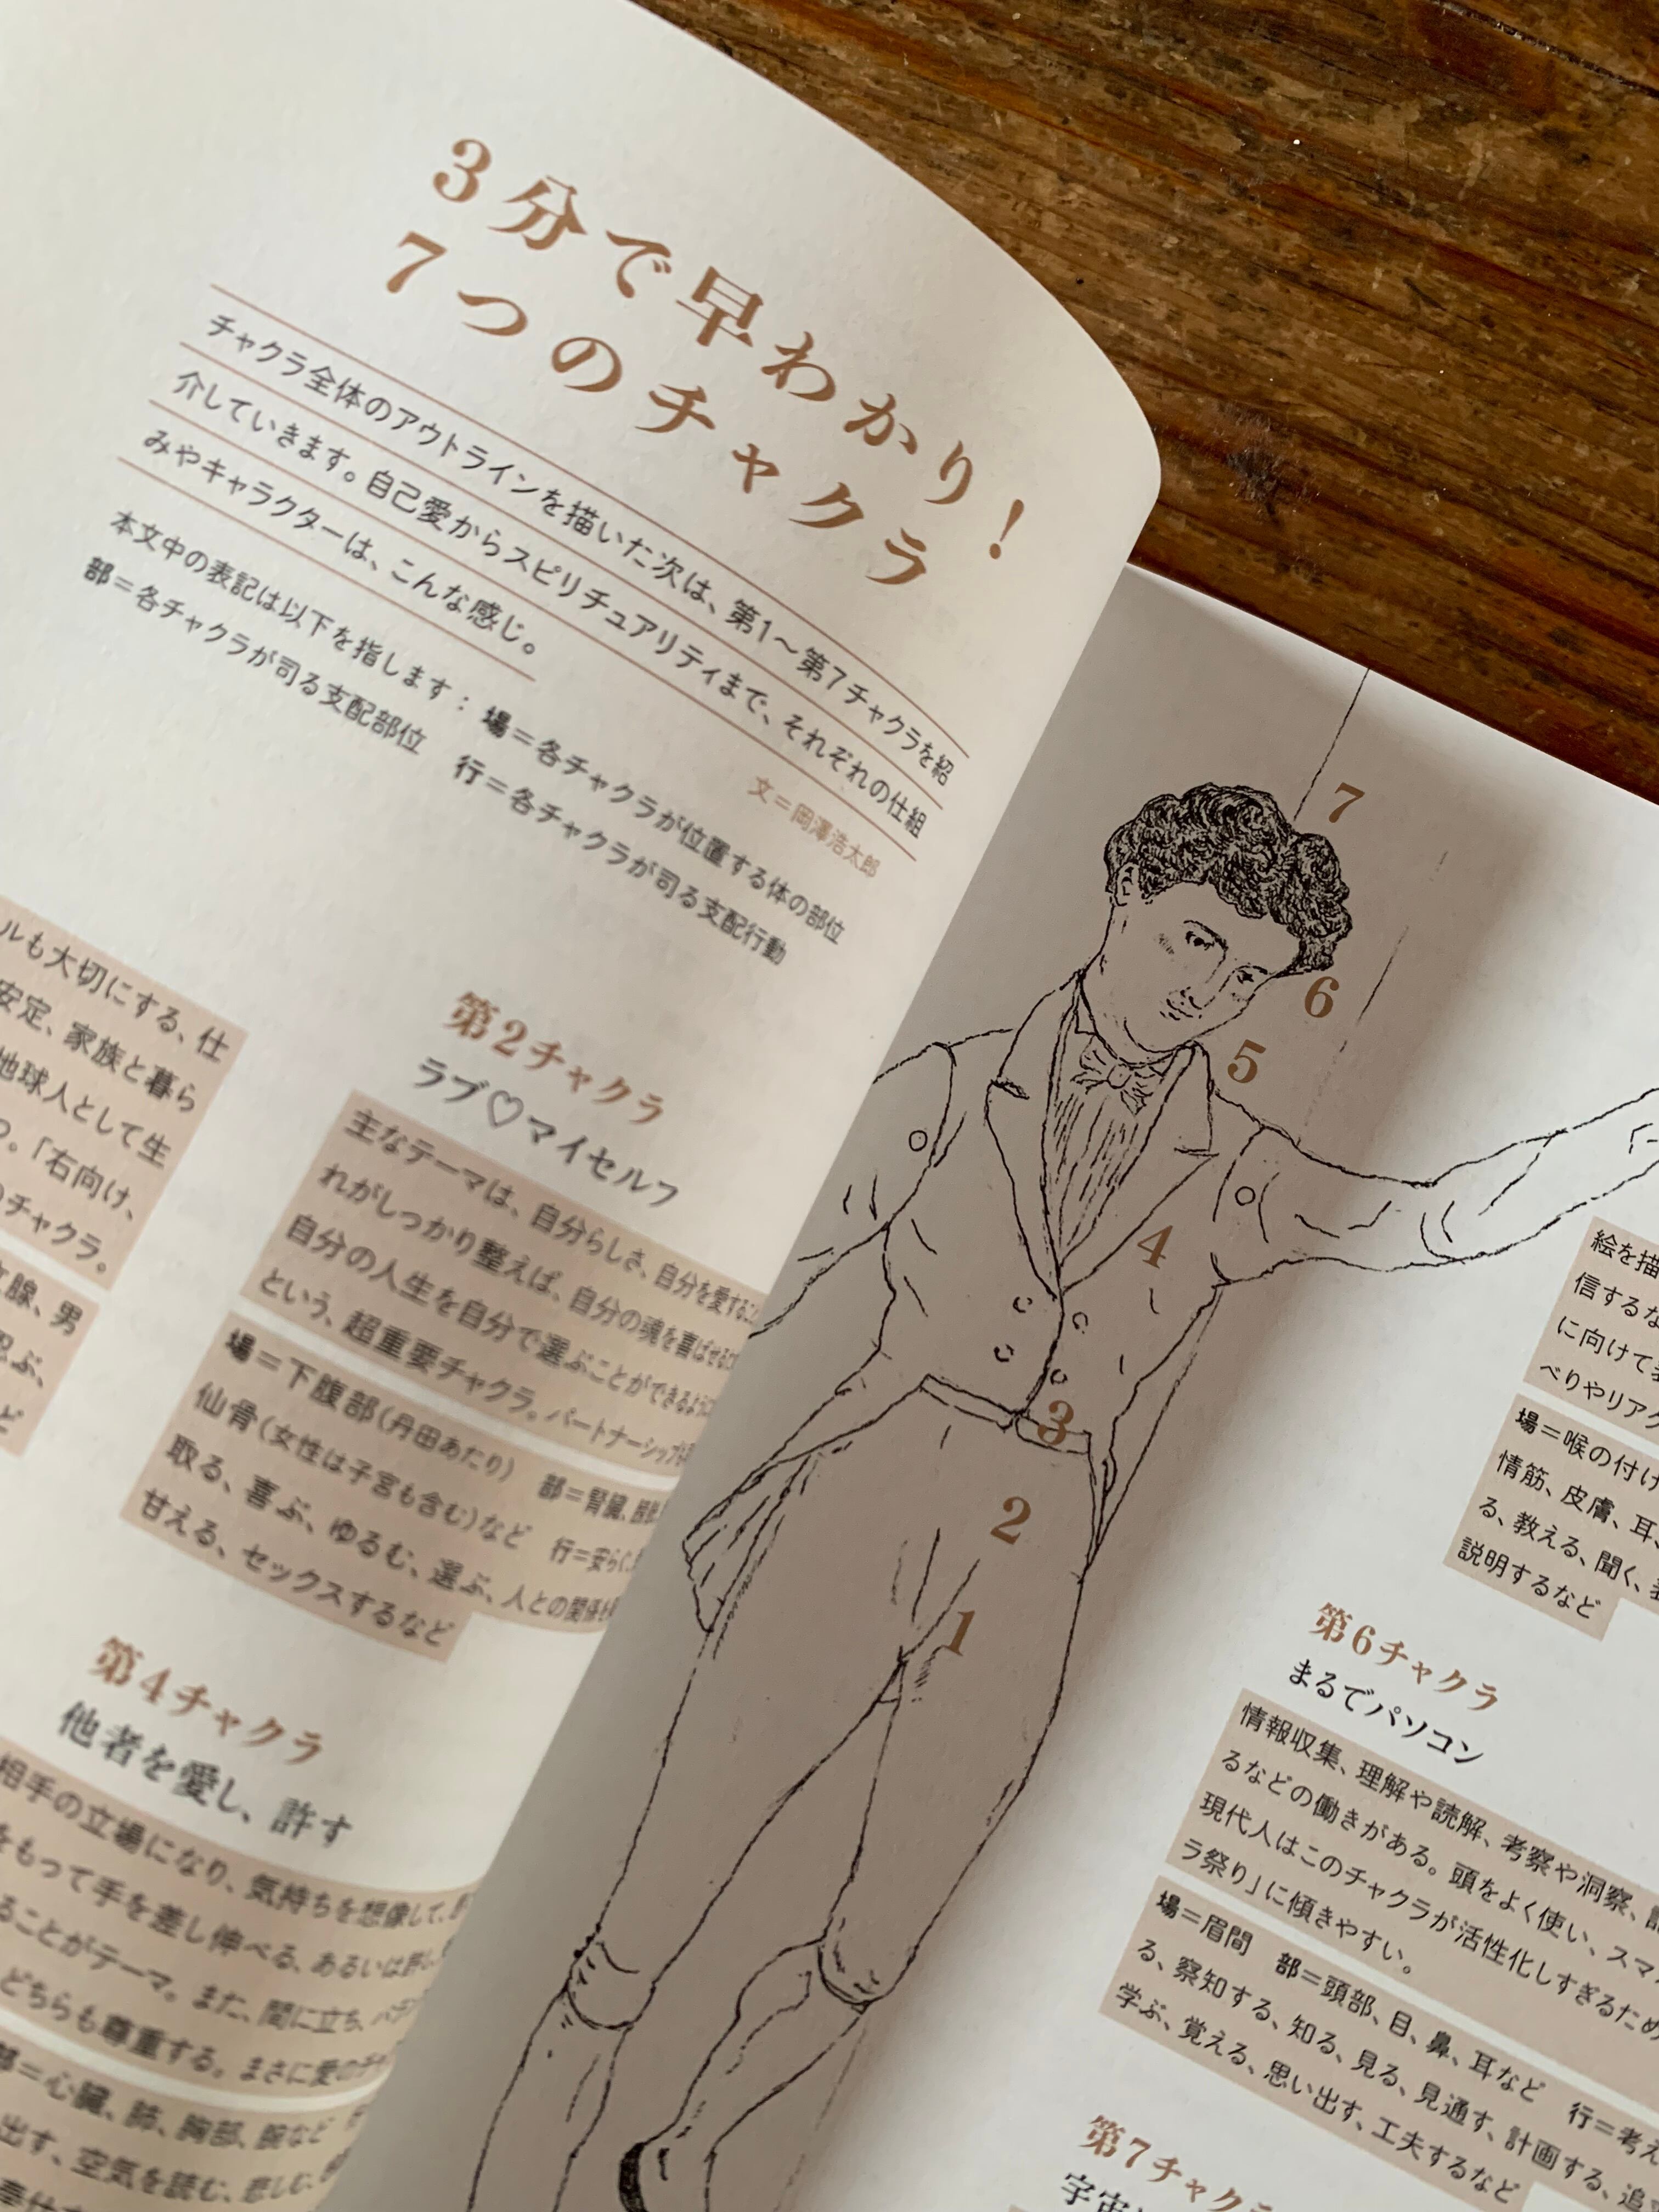 3分で早わかり！
7つのチャクラ
チャクラ全体のアウトラインを描いた次は、第1〜第7チャクラを紹
介していきます。自己愛からスピリチュアリティまで、それぞれの仕組
みやキャラクターは、こんな感じ。
文＝岡澤浩太郎
本文中の表記は以下を指します： 場＝各チャクラが位置する体の部位
部＝各チャクラが司る支配部位 行＝各チャクラが司る支配行動
ルも大切にする、仕
安定、家族と暮ら
地球人として生
つ。「右向け、
チャクラ。
腺、男
忍ぶ、
ど
第2チャクラ
ラブ♡マイセルフ
主なテーマは、自分らしさ、自分を愛すること
れがしっかり整えば、自分の魂を喜ばせる
自分の人生を自分で選ぶことができるように
という、超重要チャクラ。パートナーシップ
場＝下腹部（丹田あたり） 部＝腎臓、膀胱
仙骨（女性は子宮も含む）など 行＝安らぐ
取る、喜ぶ、ゆるむ、選ぶ、人との関係を
甘える、セックスするなど
第4チャクラ
他者を愛し、許す
相手の立場になり、気持ちを想像して、
をもって手を差し伸べる、あるいは許し
ることがテーマ。また、間に立ち、バラン
どちらも尊重する。まさに愛のチャ
部＝心臓、肺、胸部、腕など
出す、空気を読む、悲しむ、
7
6
5
4
3
2
1
絵を描
信するな
に向けて
べりやリアク
場＝喉の付け
情筋、皮膚、耳
る、教える、聞く、
説明するなど
第6チャクラ
まるでパソコン
情報収集、理解や読解、考察や洞察、
るなどの働きがある。頭をよく使い、スマ
現代人はこのチャクラが活性化しすぎるため
ラ祭り」に傾きやすい。
場＝眉間 部＝頭部、目、鼻、耳など 行＝考え
る、察知する、知る、見る、見通す、計画する、追
学ぶ、覚える、思い出す、工夫するなど
第7チャクラ
宇宙